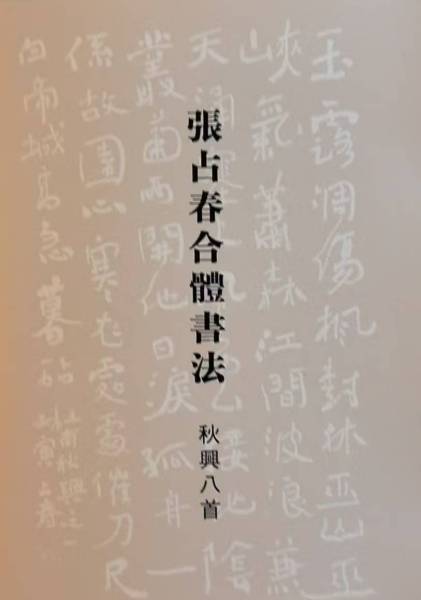 張占春合體書法
秋興八首
玉露凋傷楓樹林巫山巫
峽氣蕭森江間波浪兼
天地陰
叢菊兩開他日淚孤舟一
係故園心寒衣處處催刀尺
白帝城高急暮砧
甫秋興之一
寅占春